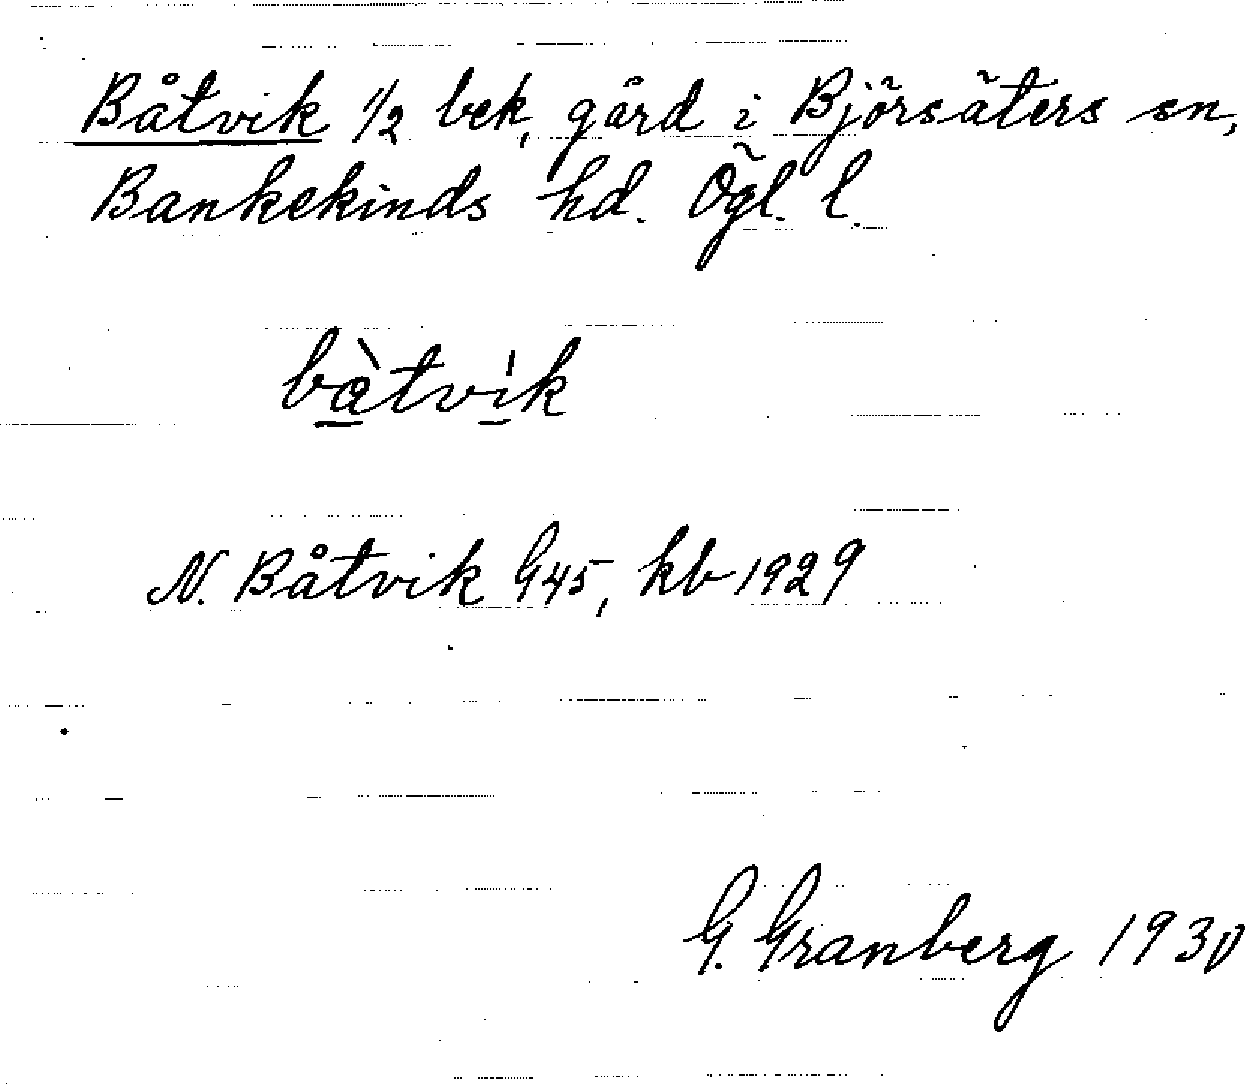 Båtvik 1/2 bek, gård i Björsäters sn,
Bankekinds hd. Ögl. l.
bàtvík
N. Båtvik G45, kb 1929
G. Granberg 1930